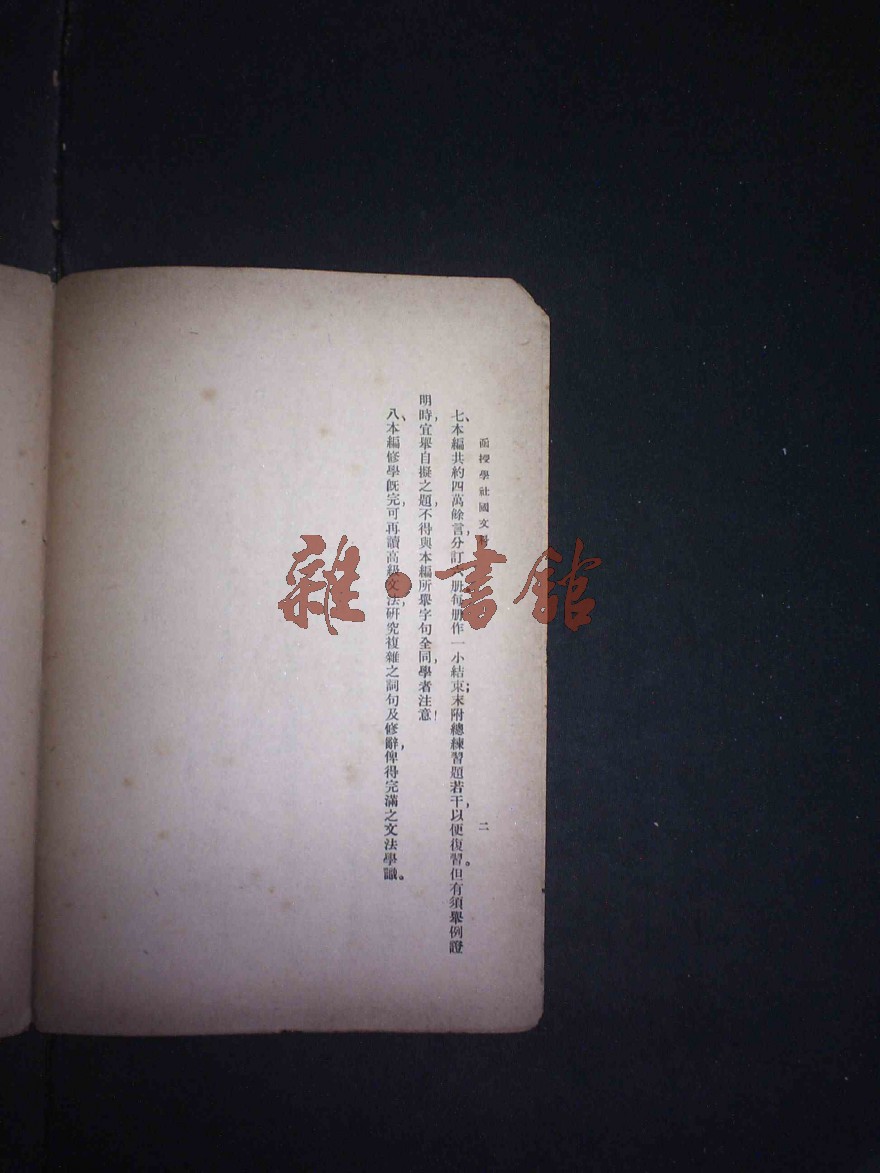 函授學社國文科
二
七、本編共約四萬餘言,分訂 册每册作一小結束;末附總練習題若干,以便復習。但有須舉例證
明時,宜舉自擬之題,不得與本編所舉字句全同,學者注意!
八、本編修學既完,可再讀高級文法,研究複雜之詞句及修辭,俾得完滿之文法學識。
雜·書館